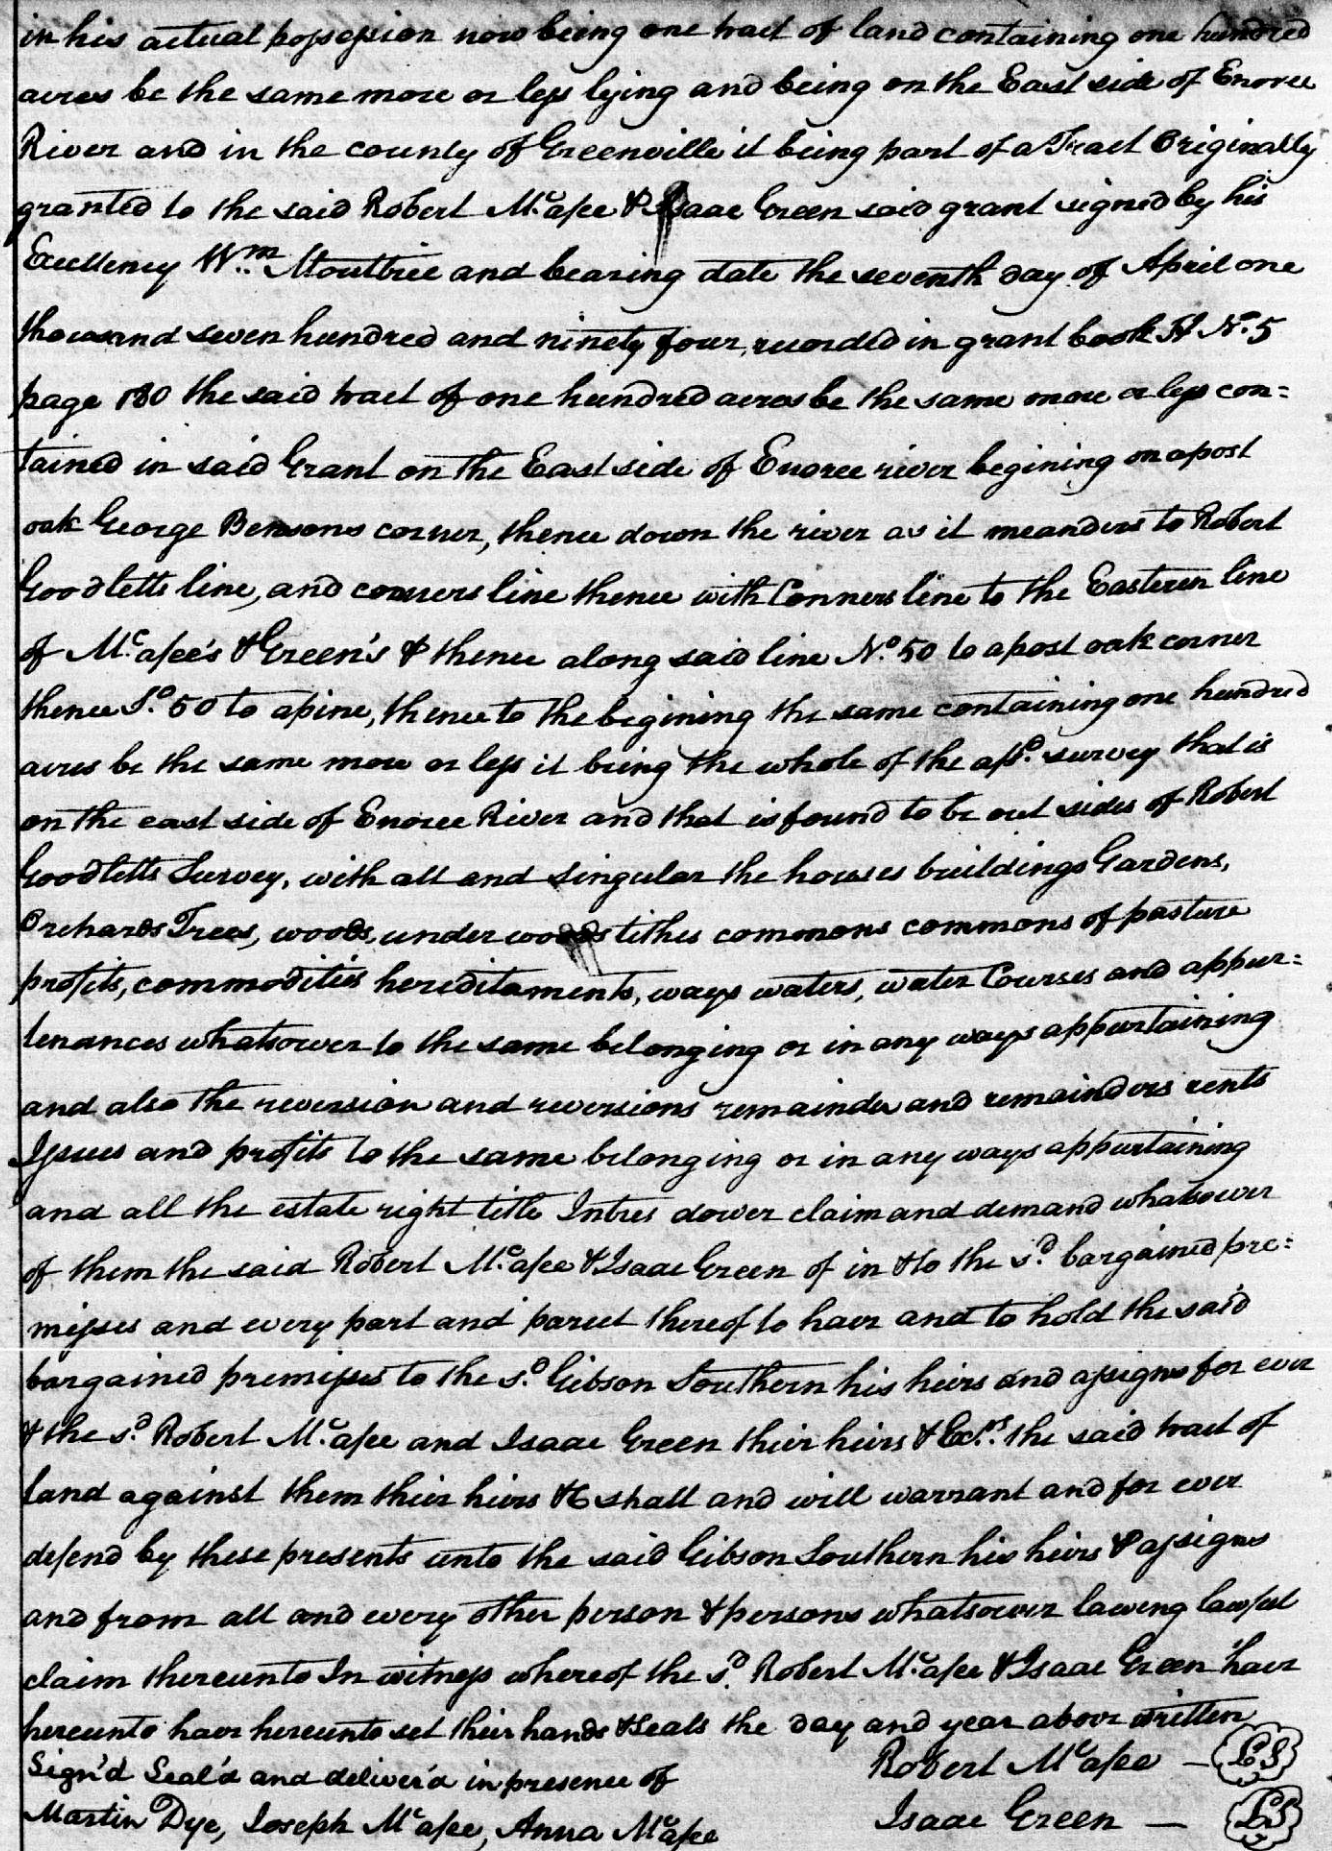 in his actual possession now being one tract of land containing one hundred
acres be the same more or less lying and being on the East side of Enoree
River and in the county of Greenville it being part of a Tract Originally
granted to the said Robert Mc.afee & Isaac Green said grant signed by his
Excellency Wm. Moultrie and bearing date the seventh day of April one
thousand seven hundred and ninety four, recorded in grant book H No. 5
page 180 the said tract of one hundred acres be the same more or less con=
tained in said Grant on the East side of Enoree river begining on a post
oak George Bensons corner, thence down the river as it meanders to Robert
Goodletts line, and conners line thence with Conners line to the Eastern line
of Mc.afee's & Green's & thence along said line No. 50 to a post oak corner
thence So. 50 to a pine, thence to the begining the same containing one hundred
acres be the same more or less it being the whole of the afsd. survey that is
on the east side of Enoree River and that is found to be out sides of Robert
Goodletts Survey, with all and singular the houses buildings Gardens,
Orchards Trees, woods, under woods tithes commons commons of pasture
profits, commodities hereditaments, ways waters, water Courses and appur=
tenances whatsower to the same belonging or in any ways appurtaining
and also the reversion and reversions remainder and remainders rents
Issues and profits to the same belonging or in any ways appurtaining
and all the estate right title Intres dower claim and demand whatsower
of them the said Robert Mc.afee & Isaac Green of in & to the sd. bargained pre=
misses and every part and parcel thereof to have and to hold the said
bargained premises to the sd. Gibson Southern his heirs and assigns for ever
& the sd. Robert Mc.afee and Isaac Green their heirs & Exrs. the said tract of
land against them their heirs &c shall and will warrant and for ever
defend by these presents unto the said Gibson Southern his heirs & assigns
and from all and every other person & persons whatsower lawing lawful
claim thereunto In witness whereof the sd. Robert Mc.afee & Isaac Green have
hereunto have hereunto set their hands & Seals the day and year above written
Sign'd Seal'd and deliver'd in presence of Robert Mcafee — LS
Martin Dye, Joseph Mcafee, Anna Mcafee Isaac Green — LS